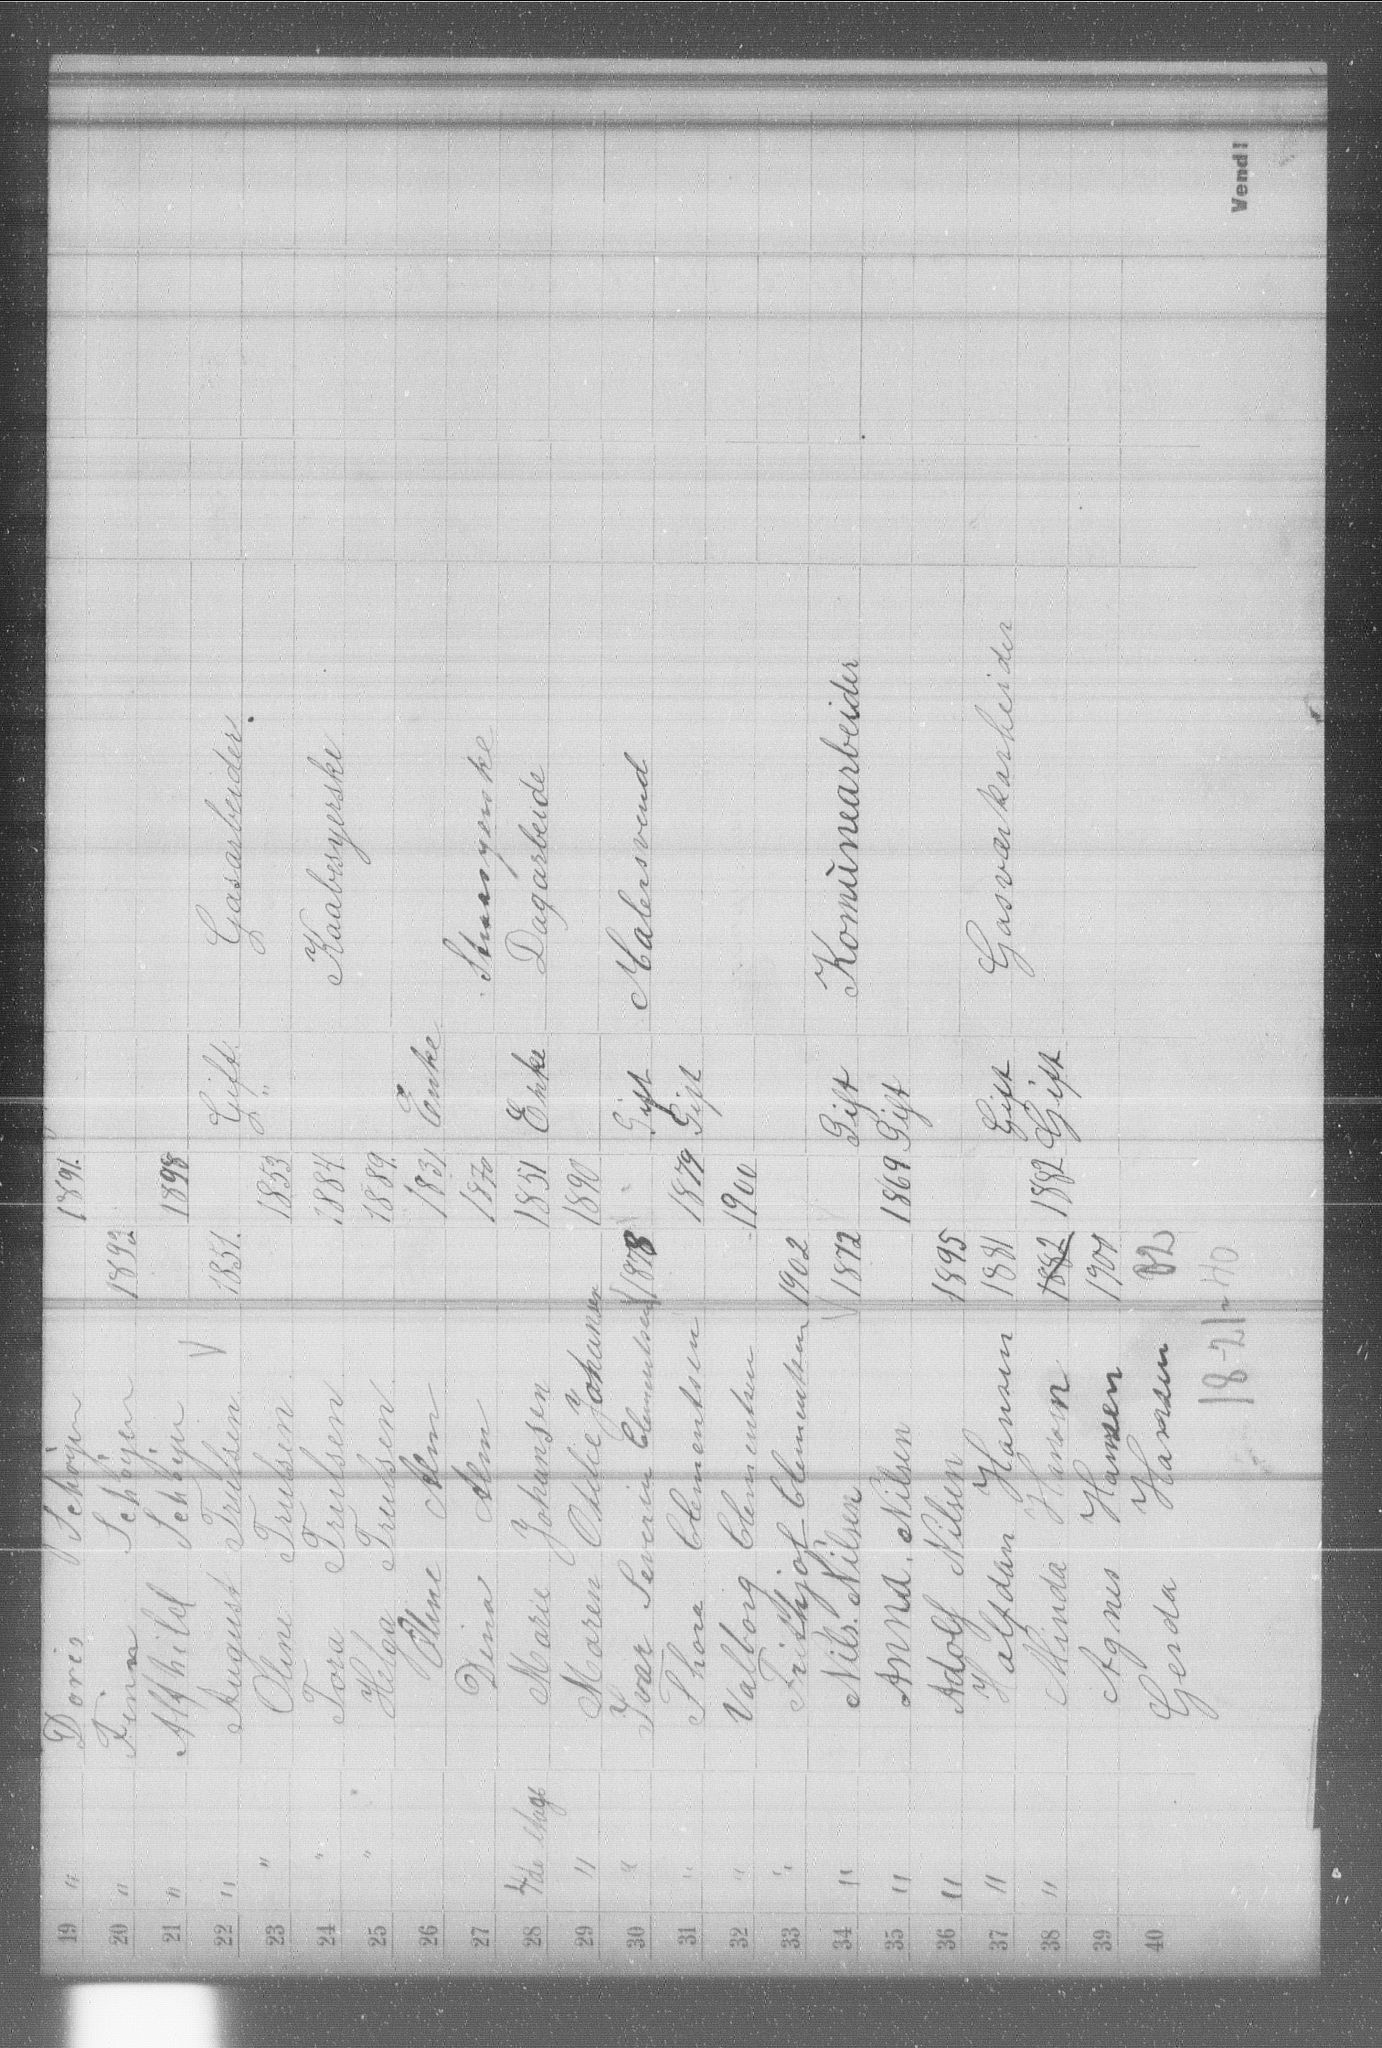 19 " Doris Schöyen 1891.
20 " Finn Schöyen 1893
21 " Alfhild Schöyen 1898
22 " August Trulsen V 1851. Gift. Gasarbeider.
23 " Oline Trulsen 1853 "
24 " Tora Trulsen 1884. Kaabesyerske
25 " Helga Trulsen 1889.
26 Oline Alm 1831 Enke
27 Dina Alm 1870
28 4de Etage Marie Johansen 1851 Enke Dagarbeide
29 " Maren Oddie Johansen 1890
30 " Ivar Severin Clementsen V 1878 Gift Malersvend
31 " Thora Clementsen 1879 Gift
32 " Valborg Clementsen 1900
33 " Frithjof Clementsen 1902
34 " Nils. Nilsen V 1872 Gift Komunearbeider
35 " Anna. Nilsen 1869 Gift
36 " Adolf Nilsen 1895
37 " Halfdan Hansen 1881 Gift Gasværkarbeider
38 " Minda Hansen 1882 1882 Gift
39 Agnes Hansen 1901
40 Gerda Hansen 02
18-21-40
Wend!